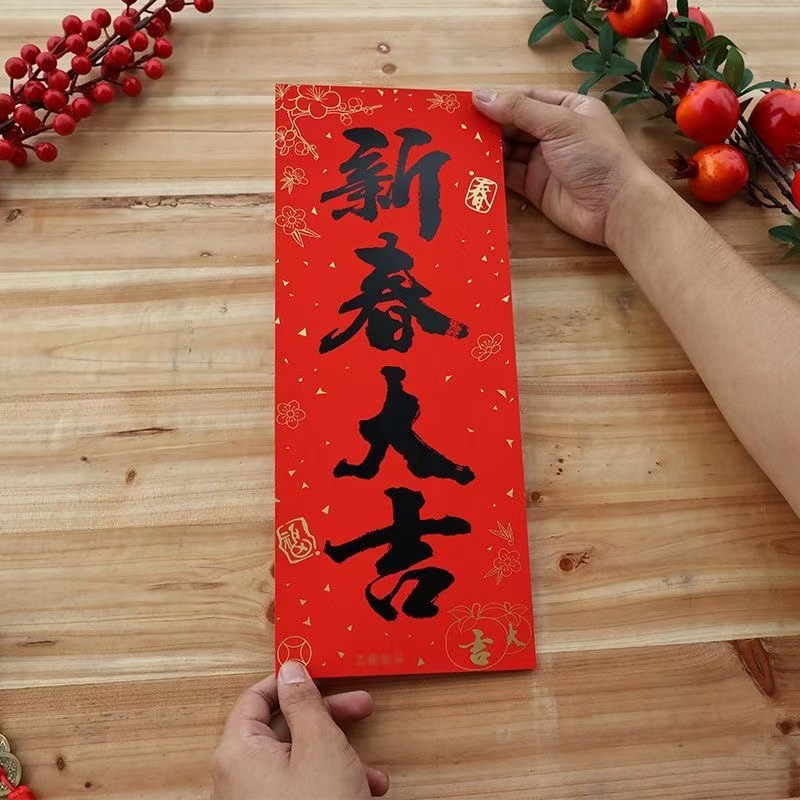 新春大吉
春
福
大吉